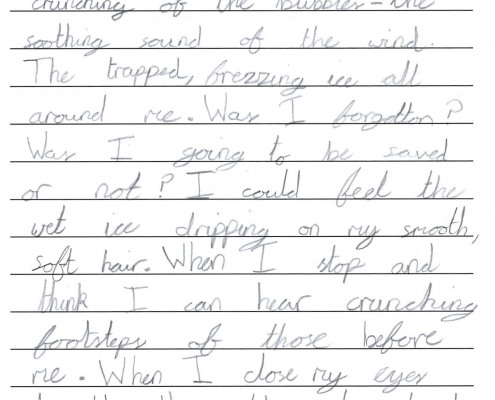 crunching of the bubbles - the
soothing sound of the wind.
The trapped, frezzing ice all
around me. Was I forgotton?
Was I going to be saved
or not? I could feel the
wet ice dripping on my smooth,
soft hair. When I stop and
think I can hear crunching
footsteps of those before
me. When I close my eyes